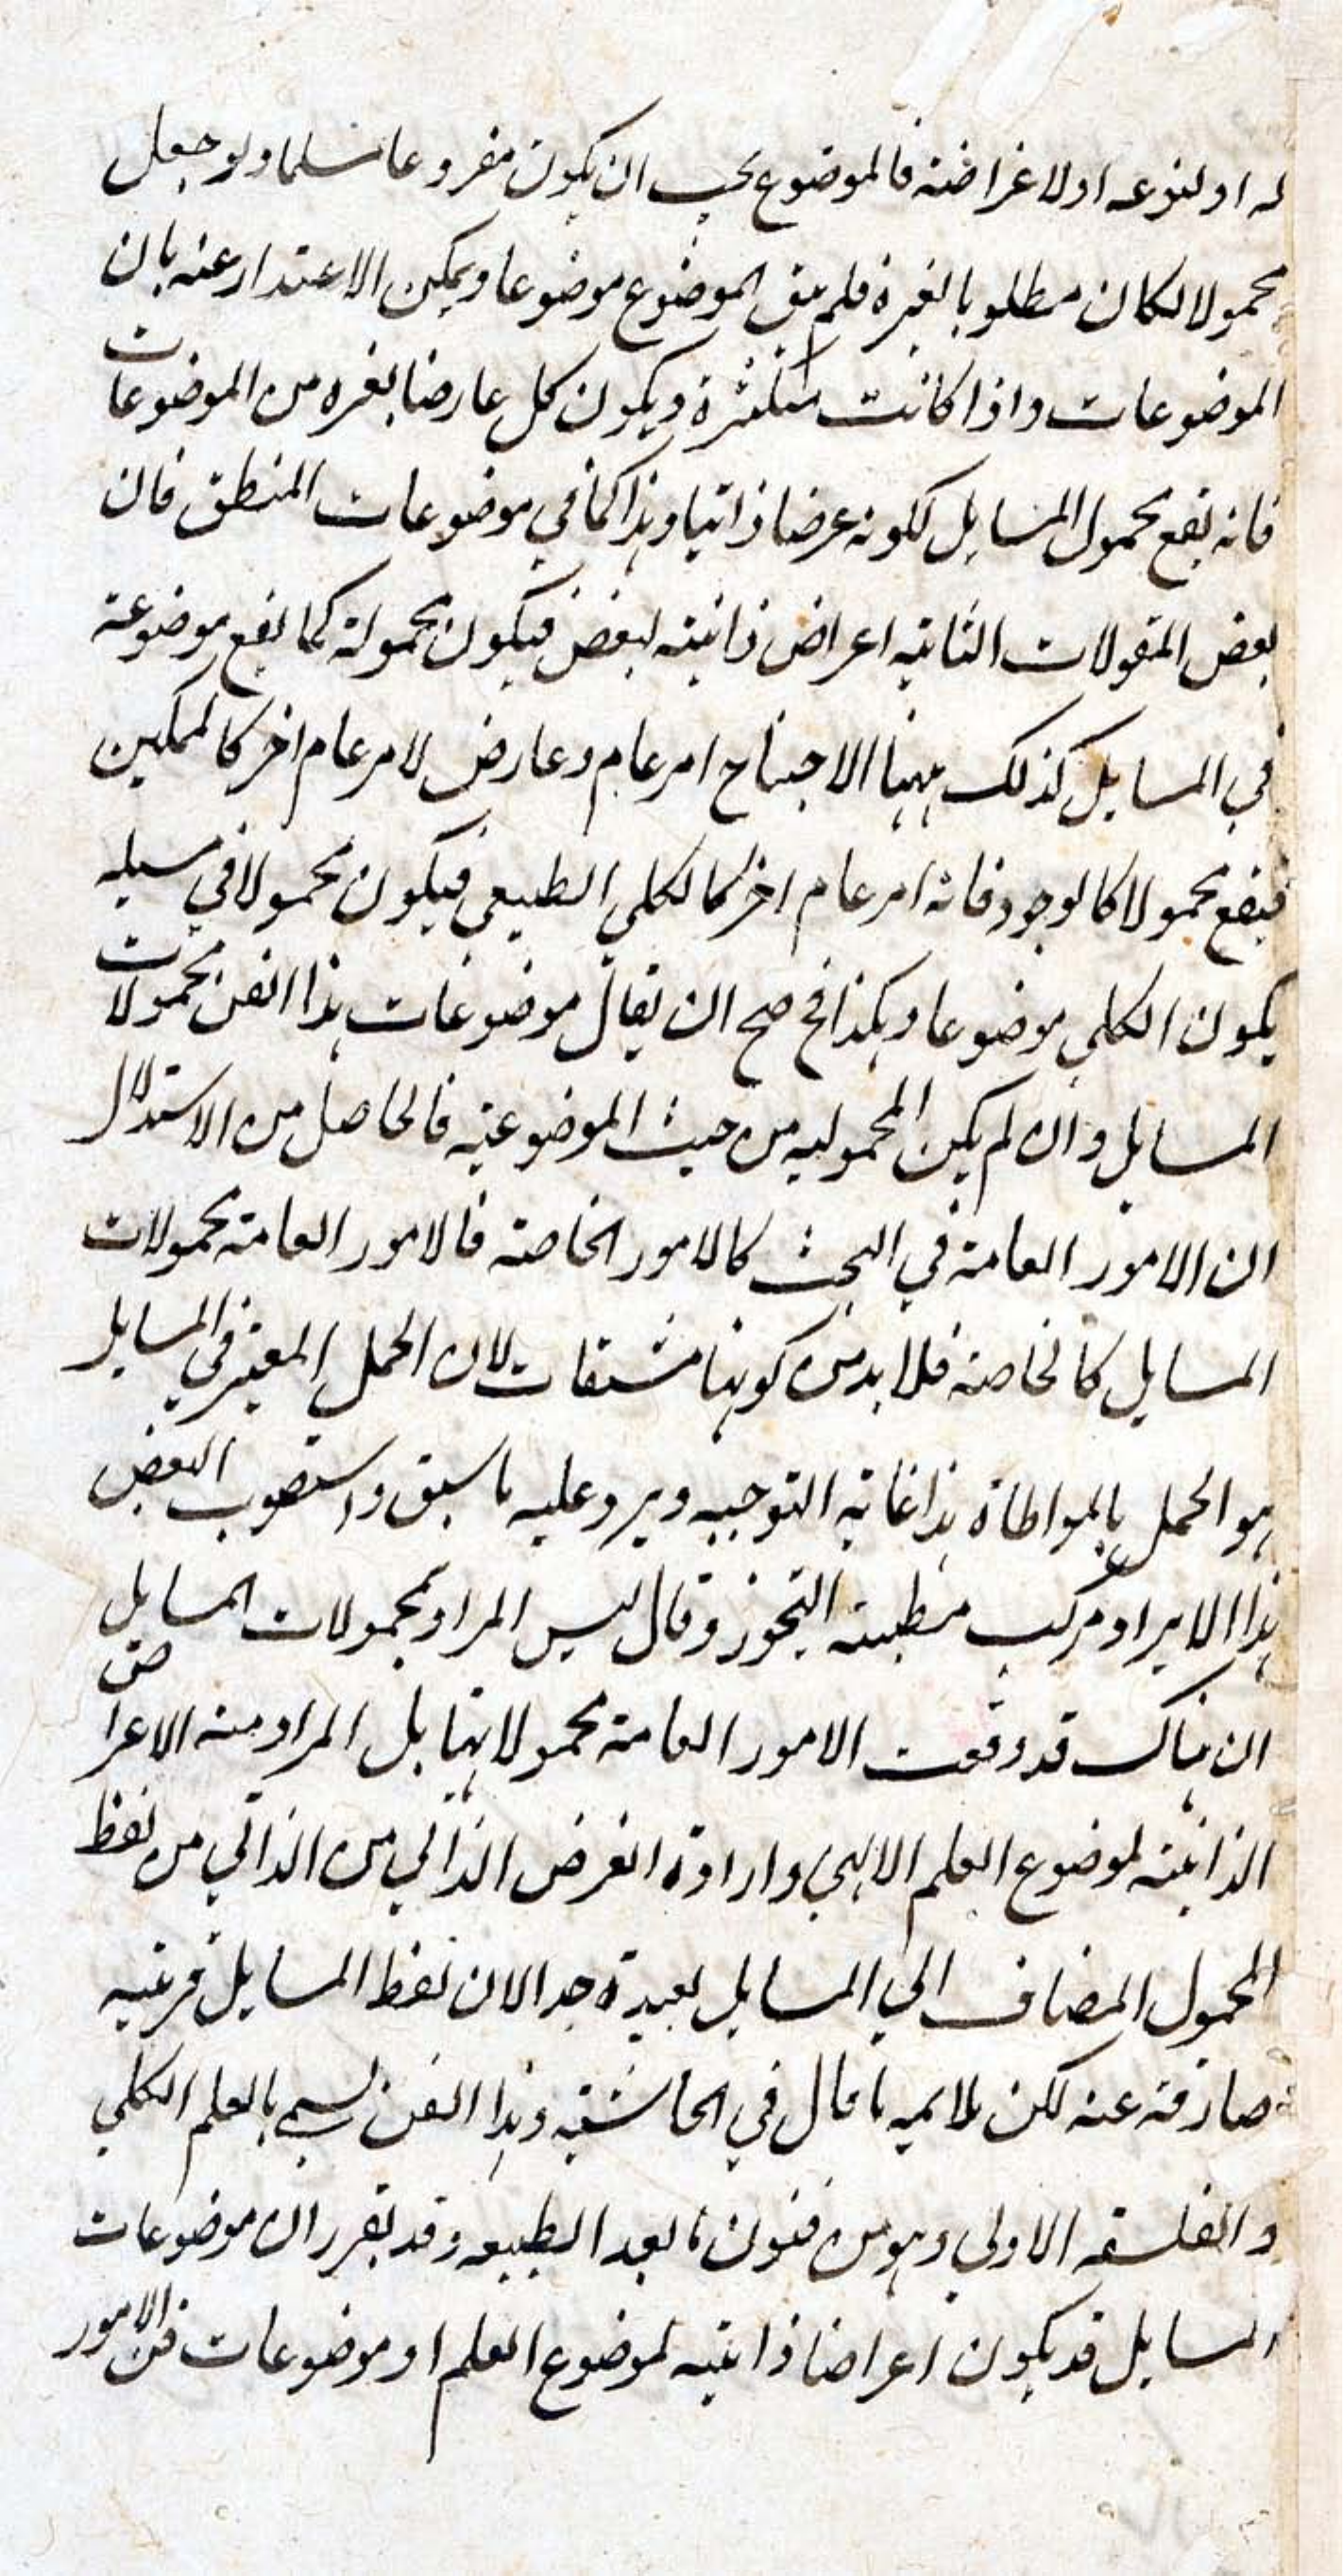 له او لنوعه او لاعراضه فالموضوع يجب ان يكون مفروعا مسلما ولو جعل
محمولا لكان مطلوبا لغيره فلم يبق الموضوع موضوعا ويمكن الاعتذار عنه بان
الموضوعات واذا كانت متكثرة ويكون كل عارضا لغيره من الموضوعات
فانه يقع محمول المسايل لكونه عرضا ذاتيا وهذا كما في موضوعات المنطق فان
بعض المقولات الثانيه اعراض ذاتية لبعض فيكون محمولة كما يقع موضوعة
في المسايل كذلك ههنا الاحتياج امر عام وعارض لامر عام اخر كالممكن
فيقع محمولا كالوجود فانه امر عام اخر كالكلي الطبيعي فيكون محمولا في مسيله
يكون الكلي موضوعا وهكذا فح صح ان يقال موضوعات هذا الفن محمولات
المسايل وان لم يكن المحموليه من حيث الموضوعيه فالحاصل من الاستدلال
ان الامور العامة في البحث كالامور الخاصة فالامور العامة محمولات
المسايل كالخاصة فلا بد من كونها مشتقات لان الحمل المعتبر في المسايل
هو الحمل بالمواطاة هذا غاية التوجيه ويرد عليه ما سبق واستصوب البعض
هذا الايراد مركب مطية التجوز وقال ليس المراد بمحمولات المسايل
ان هناك قد وقعت الامور العامة محمولاتها بل المراد منه الاعراض
الذاتية لموضوع العلم الالهي وارادة العرض الذاتي من الذاتي من لفظ
المحمول المضاف الي المسايل بعيدة جدا لان لفظ المسايل قرينه
صارفة عنه لكن يلايمه ما قال في الحاشيه وهذا الفن يسمي بالعلم الكلي
والفلسفه الاولي وهو من فنون ما بعد الطبيعه وقد تقرر ان موضوعات
المسايل قد يكون اعراضا ذاتيه لموضوع العلم او موضوعات فن الامور